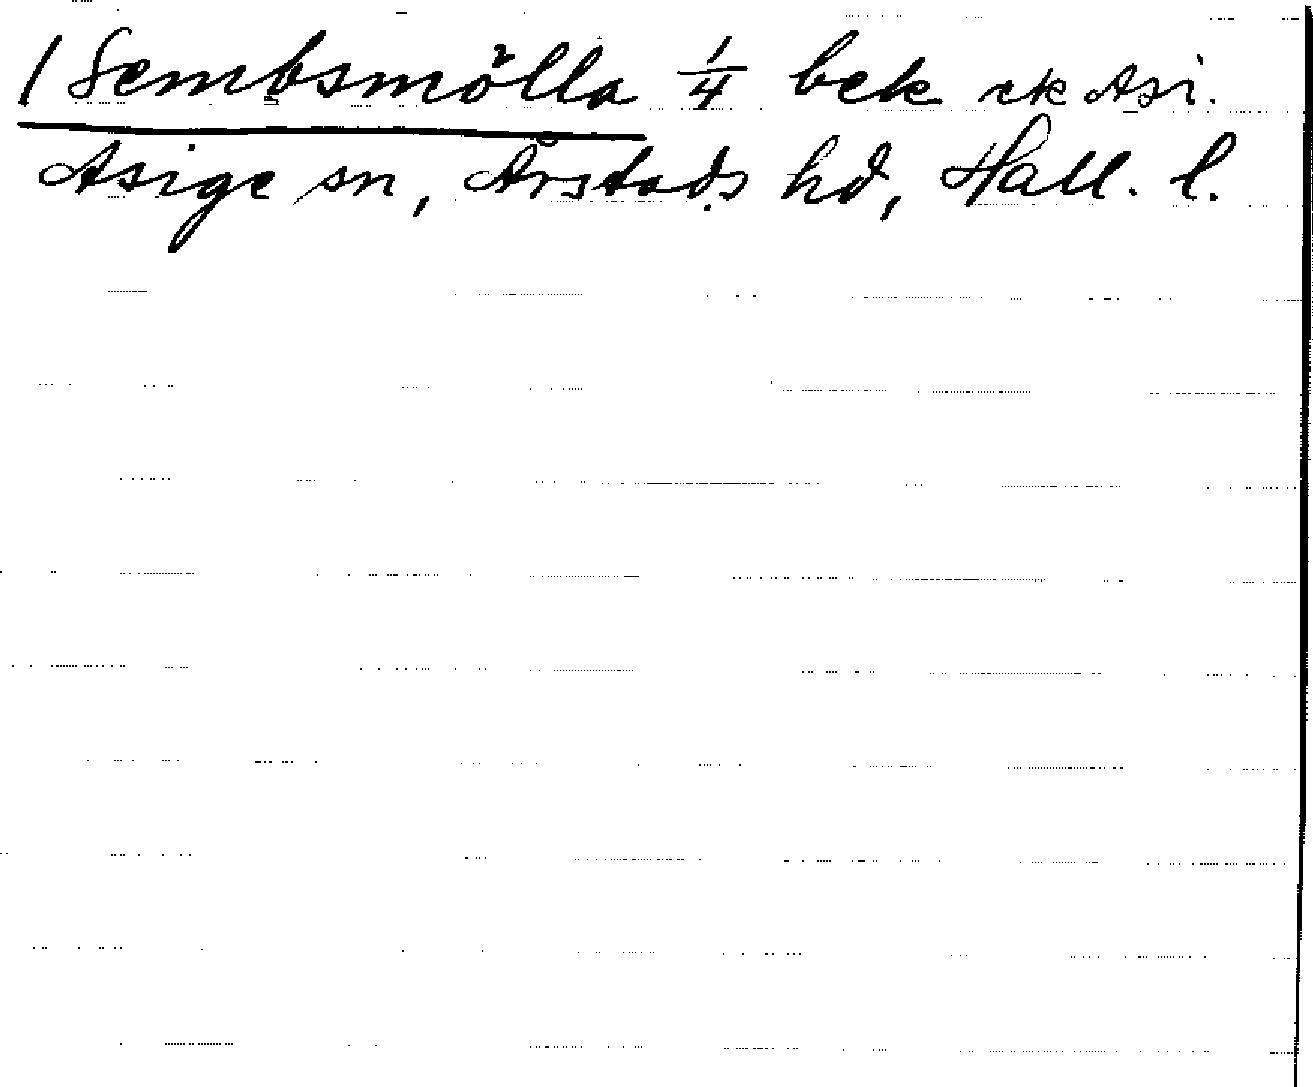 / Sembsmölla 1/4 bek ek Asi.
Asige sn, Årstads hd, Hall. l.